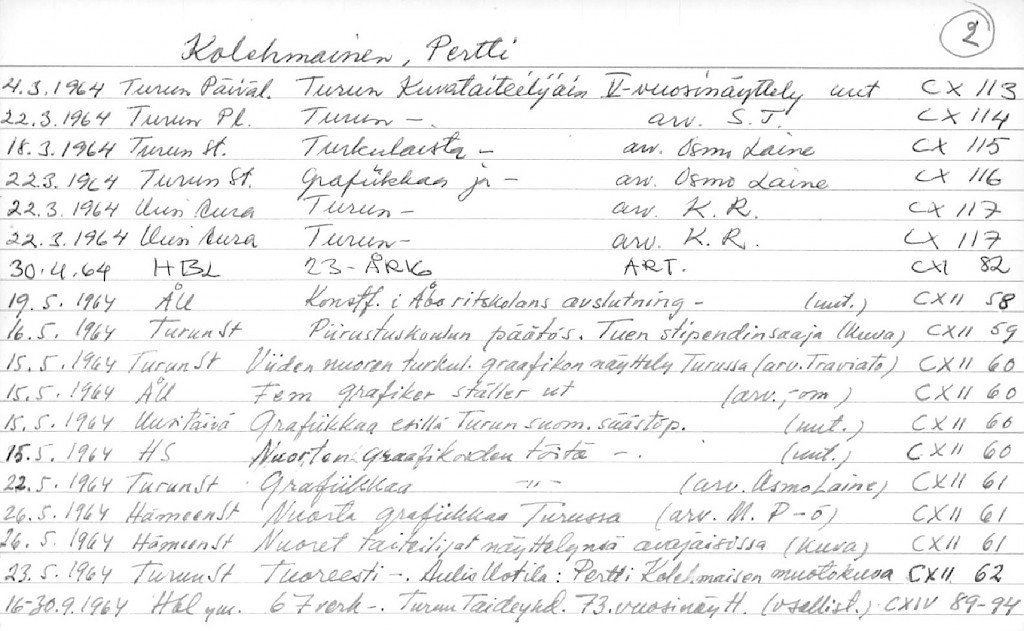 2
Kolehmainen, Pertti
4.3.1964 Turun Päiväl. Turun Kuvataiteilijain V-vuosinäyttely uut CX 113
22.3.1964 Turun Pl. Turun -. arv. S.T. CX 114
18.3.1964 Turun St. Turkulaista - arv. Osmo Laine CX 115
22.3.1964 Turun St. Grafiikkaa ja - arv. Osmo Laine CX 116
22.3.1964 Uusi Aura Turun - arv. K.R. CX 117
22.3.1964 Uusi Aura Turun - arv. K.R. CX 117
30.4.64 HBL 23-ÅRIG ART. CXI 82
19.5.1964 ÅU Konstf. i Åbo ritskolans avslutning - (uut.) CXII 58
16.5.1964 Turun St Piirustuskoulun päätös. Tuen stipendinsaaja (kuva) CXII 59
15.5.1964 Turun St Viiden nuoren turkul. graafikon näyttely Turussa (arv. Traviato) CXII 60
15.5.1964 ÅU Fem grafiker ställer ut (arv. -om) CXII 60
15.5.1964 Uusi Päivä Grafiikkaa esillä Turun suom. säästöp. (uut.) CXII 60
15.5.1964 HS Nuorten graafikoiden töitä -. (uut.) CXII 60
22.5.1964 Turun St Grafiikkaa -"- (arv. Osmo Laine) CXII 61
26.5.1964 Hämeen St Nuorta grafiikkaa Turussa (arv. M. P-ö) CXII 61
26.5.1964 Hämeen St Nuoret taiteilijat näyttelynsä avajaisissa (kuva) CXII 61
23.5.1964 Turun St Tuoreesti -. Aulis Uotila: Pertti Kolehmaisen muotokuva CXII 62
16-30.9.1964 Hbl ym. 67 verk -. Turun Taideyhd. 73. vuosinäytt. (osallist.) CXIV 89-94